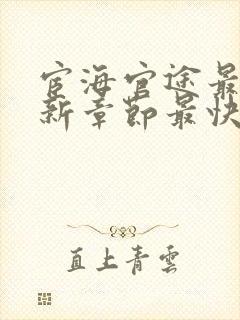 宦海官途最
新章節最快
直上青雲